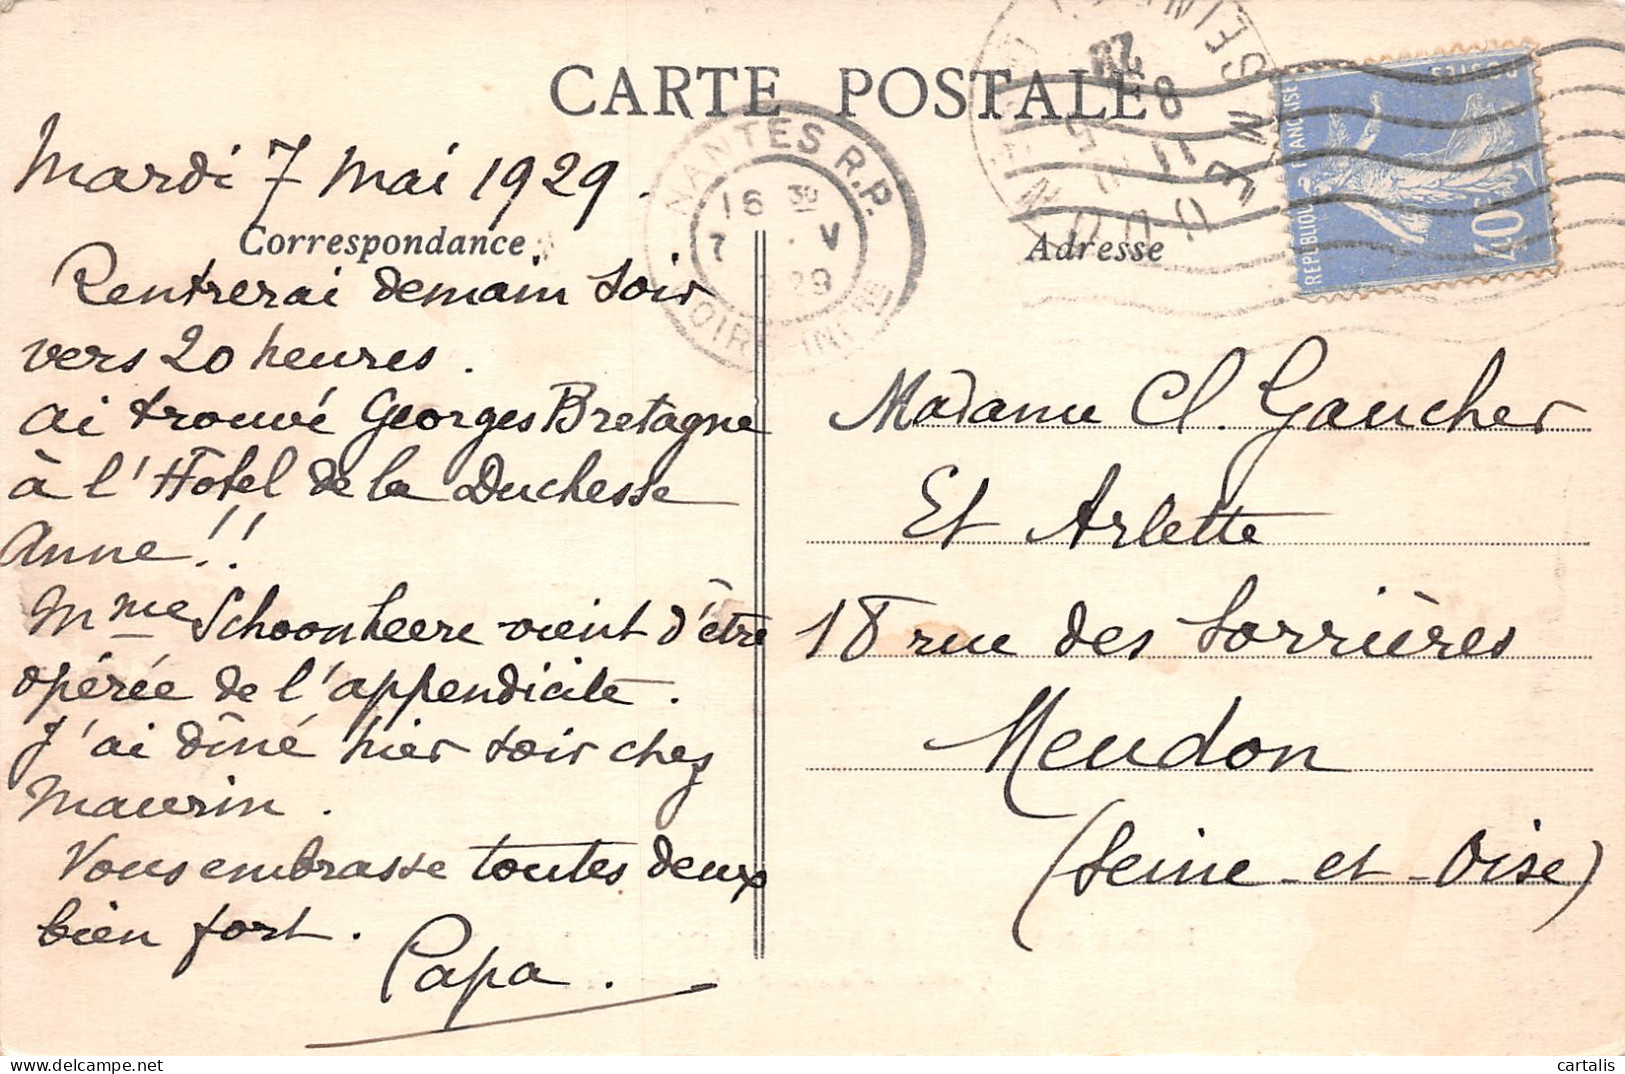 CARTE POSTALE
Mardi 7 Mai 1929.
Correspondance
Rentrerai demain soir
vers 20 heures.
ai trouvé Georges Bretagne
à l'Hôtel de la Duchesse
Anne!!
Mme Schoonheere vient d'être
opérée de l'appendicite.
J'ai dîné hier soir chez
Maurin.
Vous embrasse toutes deux
bien fort.
Papa.
NANTES R.P.
16 30
7 V
29
LOIRE INFRE
Adresse
POSTES
REPUBLIQUE FRANÇAISE
40c
Madame Cl. Gaucher
Et Arlette
18 rue des Sorrières
Meudon
(Seine-et-Oise)
cartalis
delcampe.net